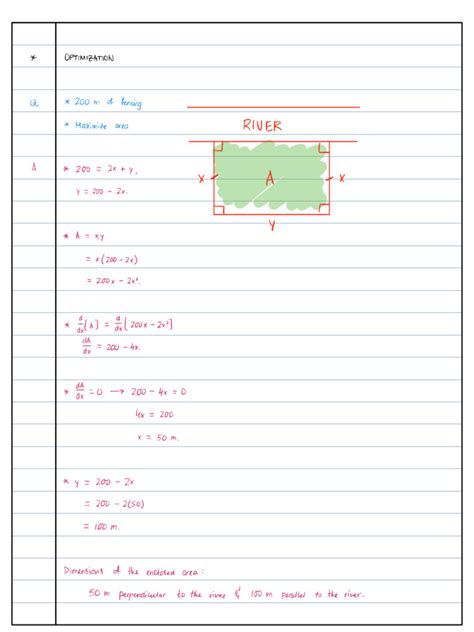 * OPTIMIZATION
Q * 200 m of fencing
* Maximize area
RIVER
A * 200 = 2x + y,
y = 200 - 2x.
x A x
y
* A = xy
= x(200-2x)
= 200x - 2x².
* d/dx [A] = d/dx [200x - 2x²]
dA/dx = 200 - 4x.
* dA/dx = 0 → 200 - 4x = 0
4x = 200
x = 50 m.
* y = 200 - 2x
= 200 - 2(50)
= 100 m.
Dimensions of the enclosed area:
50 m perpendicular to the river & 100 m parallel to the river.